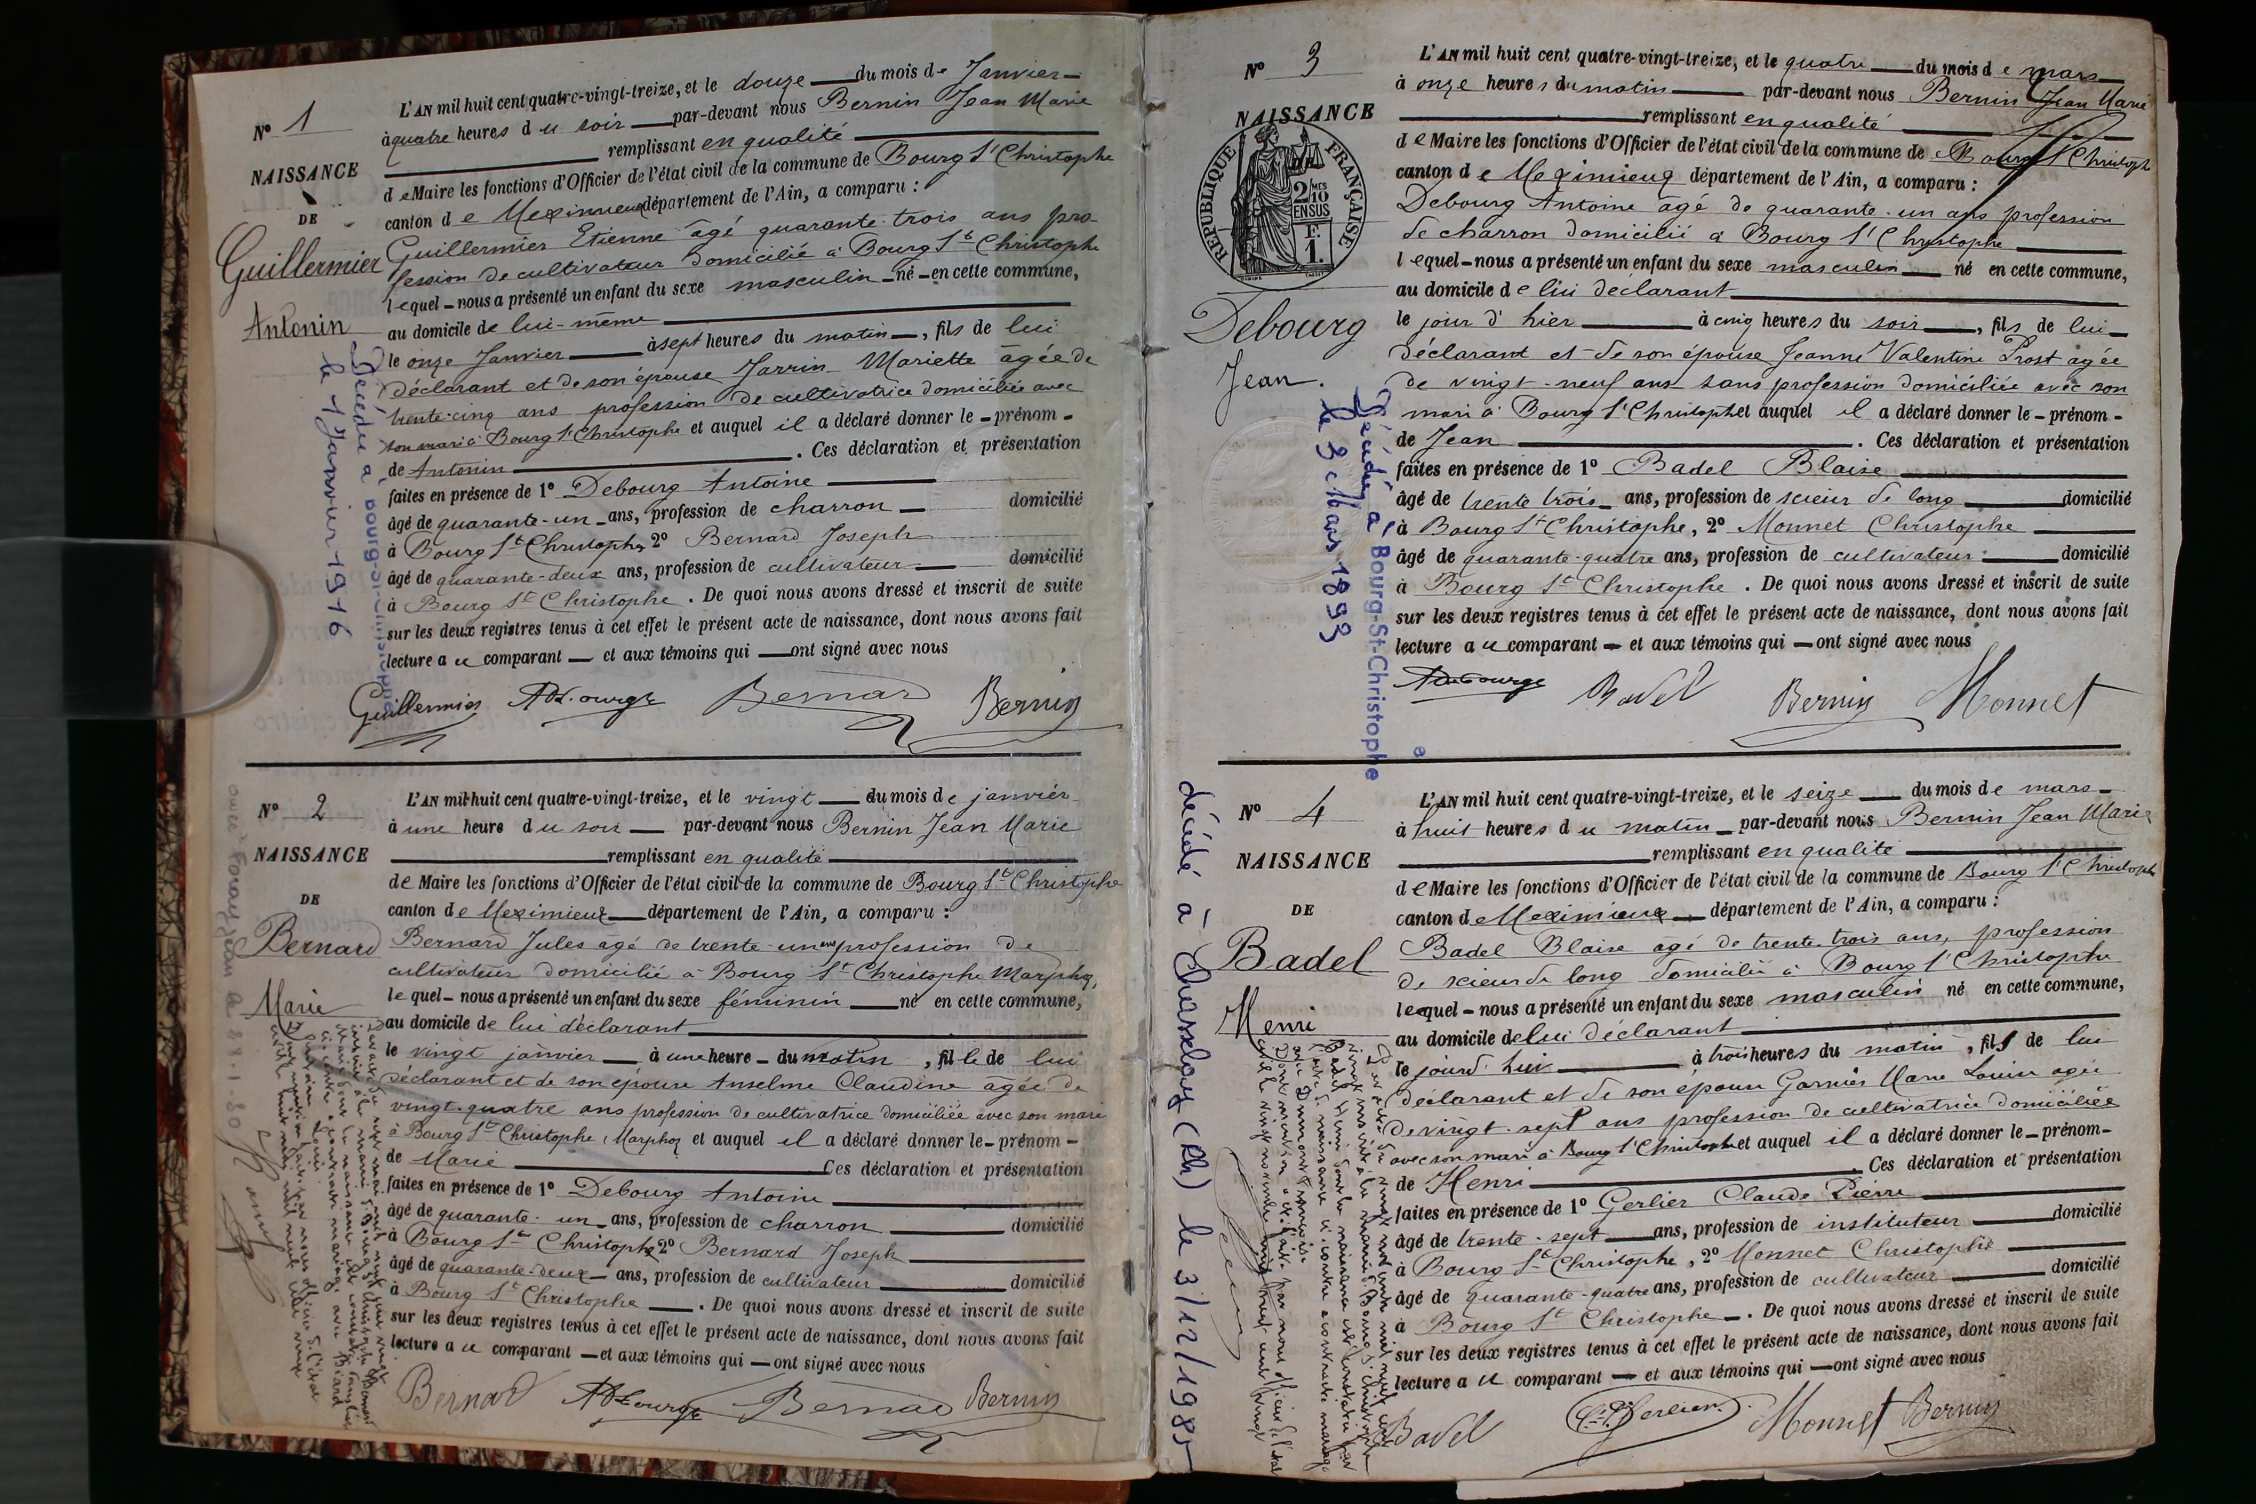 N° 1
NAISSANCE
DE
Guillermier
Antonin
Décédé à Bourg-St-Christophe
le 1 Janvier 1916
L'AN mil huit cent quatre-vingt-treize, et le douze du mois de Janvier
à quatre heures du soir par-devant nous Bernin Jean Marie
remplissant en qualité
de Maire les fonctions d'Officier de l'état civil de la commune de Bourg St Christophe
canton de Meximieux département de l'Ain, a comparu :
Guillermier Etienne âgé quarante-trois ans pro-
fession de cultivateur domicilié à Bourg St Christophe
lequel nous a présenté un enfant du sexe masculin né en cette commune,
au domicile de lui-même
le onze Janvier à sept heures du matin, fils de lui
déclarant et de son épouse Jarrin Mariette âgée de
trente-cinq ans profession de cultivatrice domiciliée avec
son mari à Bourg St Christophe et auquel il a déclaré donner le prénom
de Antonin. Ces déclaration et présentation
faites en présence de 1° Debourg Antoine
âgé de quarante-un ans, profession de charron domicilié
à Bourg St Christophe, 2° Bernard Joseph
âgé de quarante-deux ans, profession de cultivateur domicilié
à Bourg St Christophe. De quoi nous avons dressé et inscrit de suite
sur les deux registres tenus à cet effet le présent acte de naissance, dont nous avons fait
lecture au comparant et aux témoins qui ont signé avec nous
Guillermier ADebourg Bernard Bernin
N° 2
NAISSANCE
DE
Bernard
Marie
L'AN mil huit cent quatre-vingt-treize, et le vingt du mois de janvier
à une heure du soir par-devant nous Bernin Jean Marie
remplissant en qualité
de Maire les fonctions d'Officier de l'état civil de la commune de Bourg St Christophe
canton de Meximieux département de l'Ain, a comparu :
Bernard Jules âgé de trente-un ans profession de
cultivateur domicilié à Bourg St Christophe Marphoz,
lequel nous a présenté un enfant du sexe féminin né en cette commune,
au domicile de lui déclarant
le vingt janvier à une heure du matin, fille de lui
déclarant et de son épouse Anselme Claudine agée de
vingt-quatre ans profession de cultivatrice domiciliée avec son mari
à Bourg St Christophe, Marphoz et auquel il a déclaré donner le prénom
de Marie Ces déclaration et présentation
faites en présence de 1° Debourg Antoine
âgé de quarante-un ans, profession de charron domicilié
à Bourg St Christophe 2° Bernard Joseph
âgé de quarante-deux ans, profession de cultivateur domicilié
à Bourg St Christophe. De quoi nous avons dressé et inscrit de suite
sur les deux registres tenus à cet effet le présent acte de naissance, dont nous avons fait
lecture au comparant et aux témoins qui ont signé avec nous
Bernard ADebourg Bernard Bernin
N° 3
NAISSANCE
RÉPUBLIQUE FRANÇAISE
2/10 MES
EN SUS
F.
1.
Debourg
Jean.
Décédé à Bourg-St-Christophe
le 3 Mars 1893
L'AN mil huit cent quatre-vingt-treize, et le quatre du mois de mars
à onze heures du matin par-devant nous Bernin Jean Marie
remplissant en qualité
de Maire les fonctions d'Officier de l'état civil de la commune de Bourg St Christophe
canton de Meximieux département de l'Ain, a comparu :
Debourg Antoine âgé de quarante-un ans profession
de charron domicilié à Bourg St Christophe
lequel nous a présenté un enfant du sexe masculin né en cette commune,
au domicile de lui déclarant
le jour d'hier à cinq heures du soir, fils de lui
déclarant et de son épouse Jeanne Valentine Prost agée
de vingt-neuf ans sans profession domiciliée avec son
mari à Bourg St Christophe et auquel il a déclaré donner le prénom
de Jean. Ces déclaration et présentation
faites en présence de 1° Badel Blaise
âgé de trente trois ans, profession de scieur de long domicilié
à Bourg St Christophe, 2° Monnet Christophe
âgé de quarante-quatre ans, profession de cultivateur domicilié
à Bourg St Christophe. De quoi nous avons dressé et inscrit de suite
sur les deux registres tenus à cet effet le présent acte de naissance, dont nous avons fait
lecture au comparant et aux témoins qui ont signé avec nous
ADebourg Badel Bernin Monnet
N° 4
NAISSANCE
DE
Badel
Henri
décédé à Chasselay (Rh) le 3/12/1985
L'AN mil huit cent quatre-vingt-treize, et le seize du mois de mars
à huit heures du matin par-devant nous Bernin Jean Marie
remplissant en qualité
de Maire les fonctions d'Officier de l'état civil de la commune de Bourg St Christophe
canton de Meximieux département de l'Ain, a comparu :
Badel Blaise agé de trente-trois ans, profession
de scieur de long domicilié à Bourg St Christophe
lequel nous a présenté un enfant du sexe masculin né en cette commune,
au domicile de lui déclarant
le jourd'hui à trois heures du matin, fils de lui
déclarant et de son épouse Garnier Marie Louise agée
de vingt-sept ans profession de cultivatrice domiciliée
avec son mari à Bourg St Christophe et auquel il a déclaré donner le prénom
de Henri. Ces déclaration et présentation
faites en présence de 1° Gerlier Claude Pierre
âgé de trente-sept ans, profession de instituteur domicilié
à Bourg St Christophe, 2° Monnet Christophe
âgé de quarante-quatre ans, profession de cultivateur domicilié
à Bourg St Christophe. De quoi nous avons dressé et inscrit de suite
sur les deux registres tenus à cet effet le présent acte de naissance, dont nous avons fait
lecture au comparant et aux témoins qui ont signé avec nous
Badel C.P. Gerlier Monnet Bernin